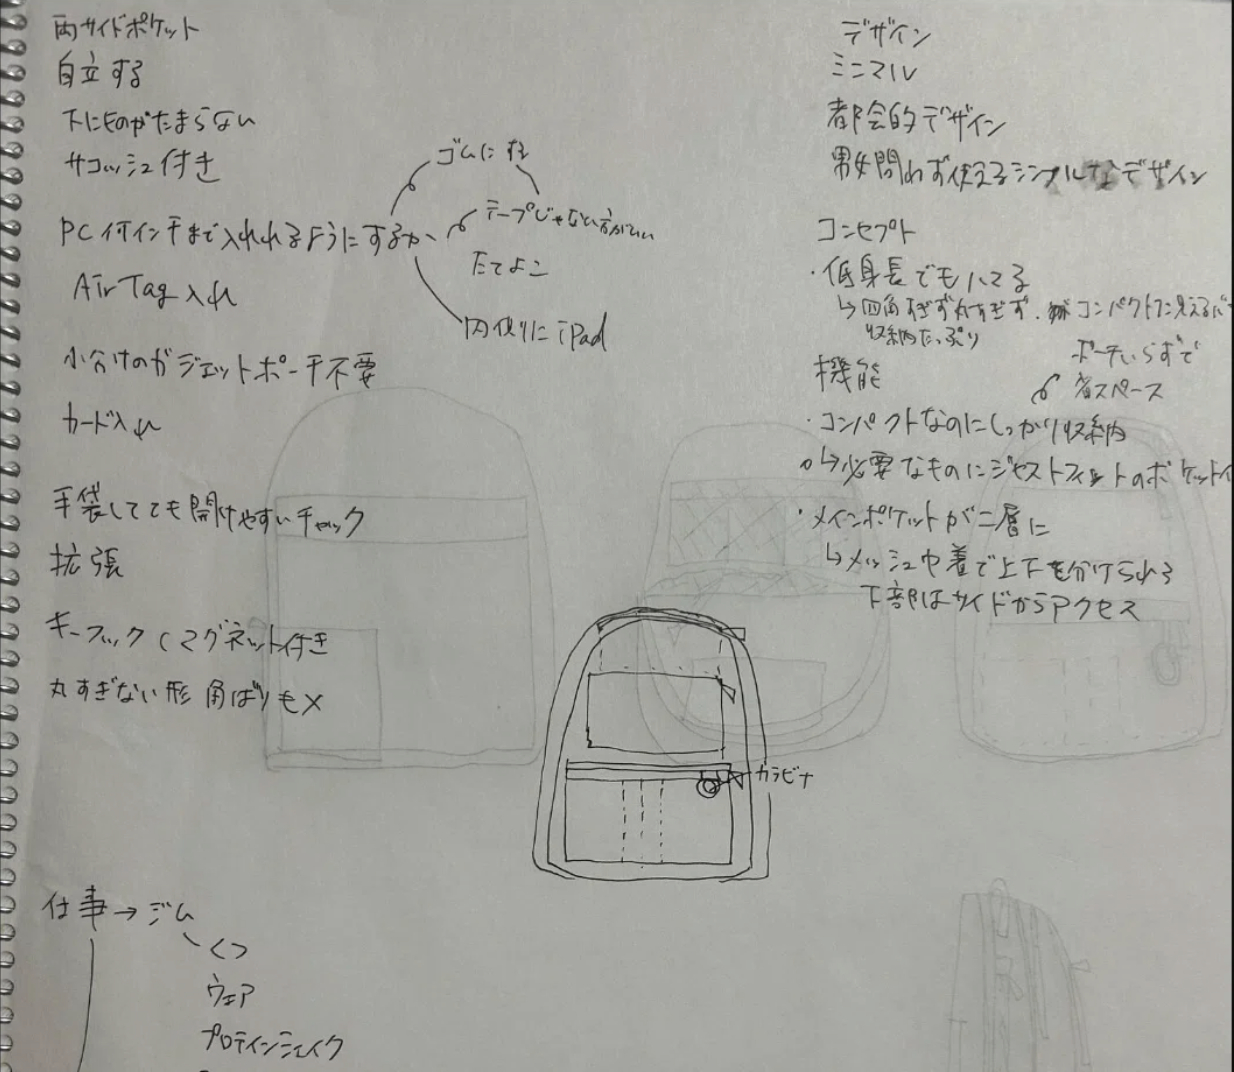 両サイドポケット
自立する
下にものがたまらない
サコッシュ付き
PC何インチまで入れれるようにするか、
ゴムに
テープじゃない方がいい
たてよこ
内側りにiPad
AirTag入れ
小分けのガジェットポーチ不要
カード入れ
手袋してても開けやすいチャック
拡張
キーフック(マグネット付き
丸すぎない形 角ばりも×
デザイン
ミニマル
都会的デザイン
男女問わず使えるシンプルなデザイン
コンセプト
・低身長でもハマる
↳四角すぎず丸すぎず、コンパクトに見える
収納たっぷり
機能
ポーチいらずで
省スペース
・コンパクトなのにしっかり収納
↳必要なものにジャストフィットのポケット
・メインポケットが二層に
↳メッシュ巾着で上下を分けられる
下部はサイドからアクセス
カラビナ
仕事→ジム
くつ
ウェア
プロテインシェイク